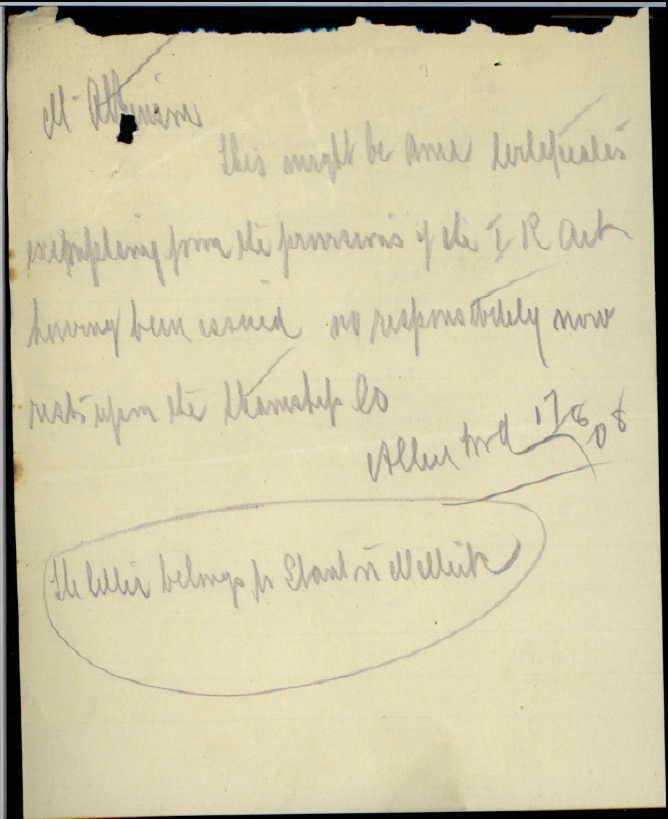 Mr Atkinson
This might be done Certificates
exempting from the provisions of the I R Act
having been issued no responsibility now
rests upon the Steamship Co
17/8/08
The letter belongs to